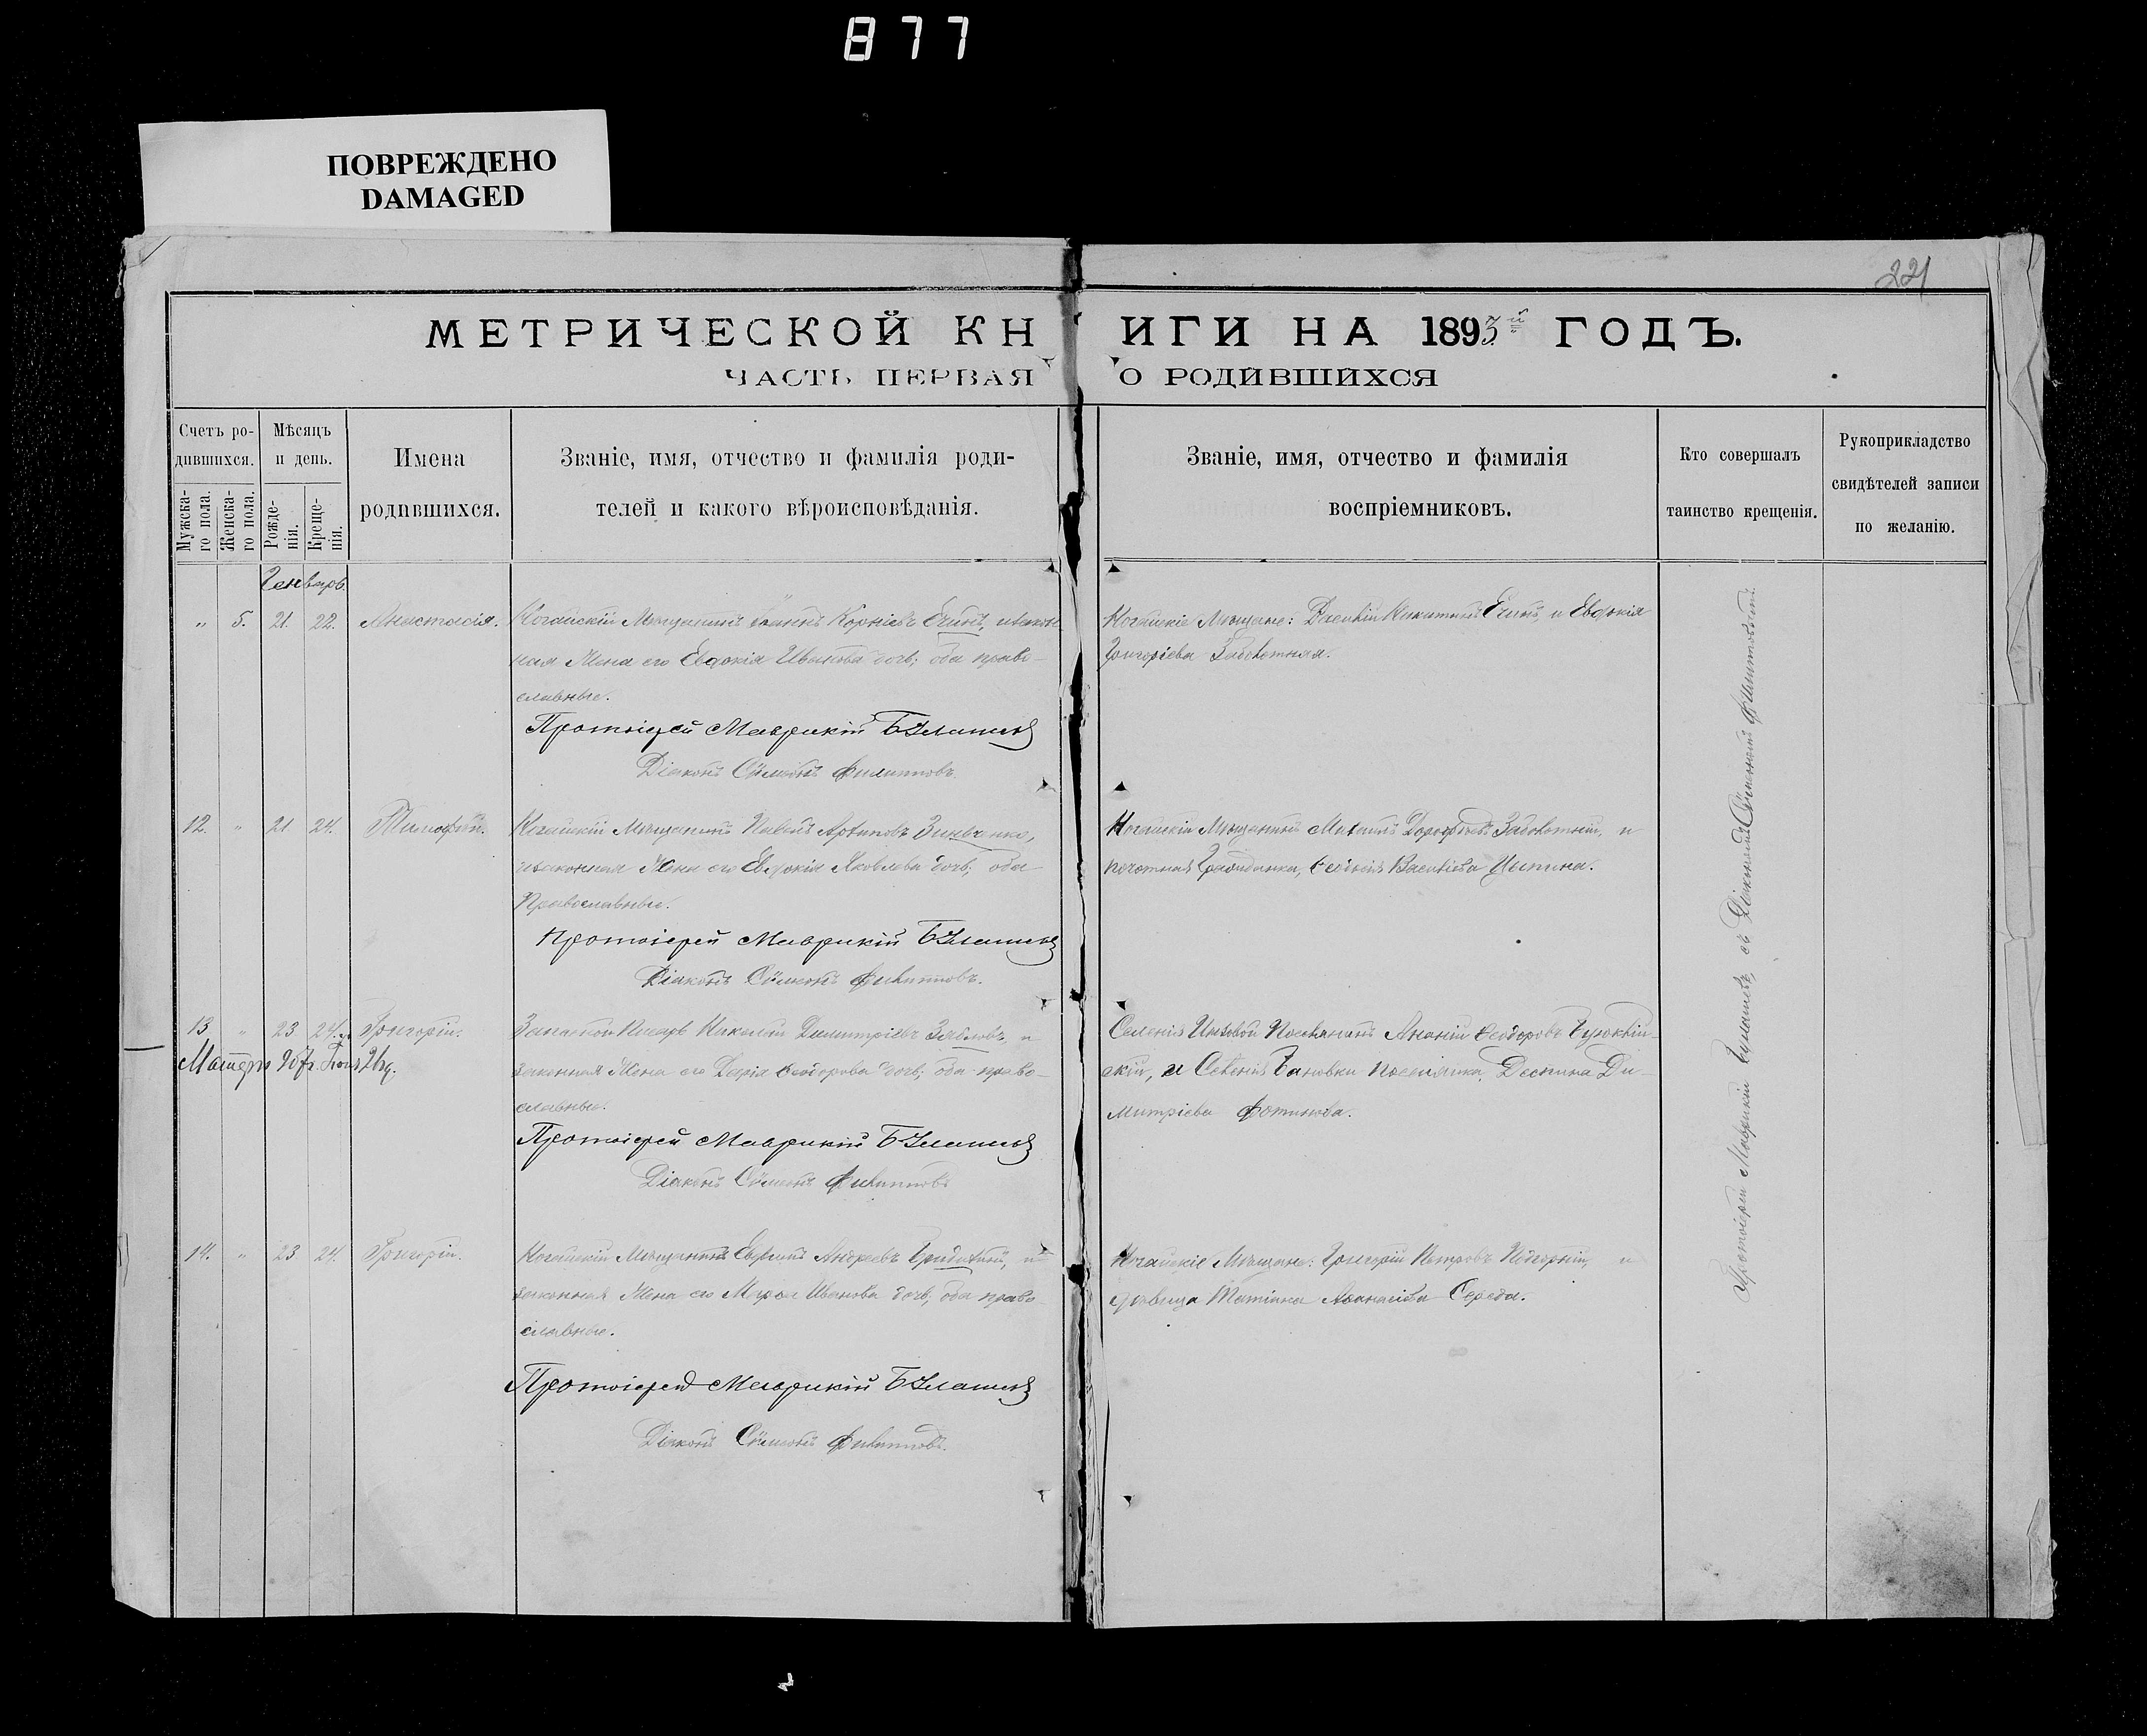 877
ПОВРЕЖДЕНО
DAMAGED
221
МЕТРИЧЕСКОЙ КНИГИ НА 1893й ГОДЪ.
ЧАСТЬ ПЕРВАЯ О РОДИВШИХСЯ
Счетъ родившихся.
Мужскаго пола.
Женскаго пола.
Мѣсяцъ и день.
Рожденія.
Крещенія.
Имена
родившихся.
Званіе, имя, отчество и фамилія роди-
телей и какого вѣроисповѣданія.
Званіе, имя, отчество и фамилія
воспріемниковъ.
Кто совершалъ
таинство крещенія.
Рукоприкладство
свидѣтелей записи
по желанію.
Генварь
" 5. 21. 22. Анастасія. Ногайскій Мѣщанинъ Корніевъ и закон
ная Жена его Евдокія Иванова дочь; оба право-
славные.
Протоіерей Маврикій
Діаконъ Сѵмеонъ Филипповъ.
Ногайскіе Мѣщане: Василій Никитинъ и Евдокія
Григоріева Заболотная.
12. " 21 24. Тимофей. Ногайскій Мѣщанинъ Павелъ Зинченко,
и законная Жена его Евдокія Яковлева дочь; оба
Православные.
Протоіерей Маврикій
Діаконъ Сѵмеонъ Филипповъ.
Ногайскій Мѣщанинъ Михаилъ Заболотный, и
почетная Гражданка, Васильева
13 " 23 24. Григорій. Запасной Писарь Николай Димитріевъ и
законная Жена его Дарія Ѳеодорова дочь; оба право-
славные.
Протоіерей Маврикій
Діаконъ Сѵмеонъ Филипповъ
Селенія Поселянинъ Ананій Ѳеодоровъ
скій, и Селенія Поселянка, Деспина Ди-
митріева Фотинова.
14. " 23 24. Григорій. Ногайскій Мѣщанинъ Андреевъ и
законная Жена его Марѳа Иванова дочь; оба право
славные.
Протоіерей Маврикій
Діаконъ Сѵмеонъ Филипповъ.
Ногайскіе Мѣщане: Григорій Петровъ Подгорный, и
дѣвица Татіана Аѳанасіева Середа.
Протоіерей Маврикій съ Діакономъ Сѵмеономъ Филипповымъ.